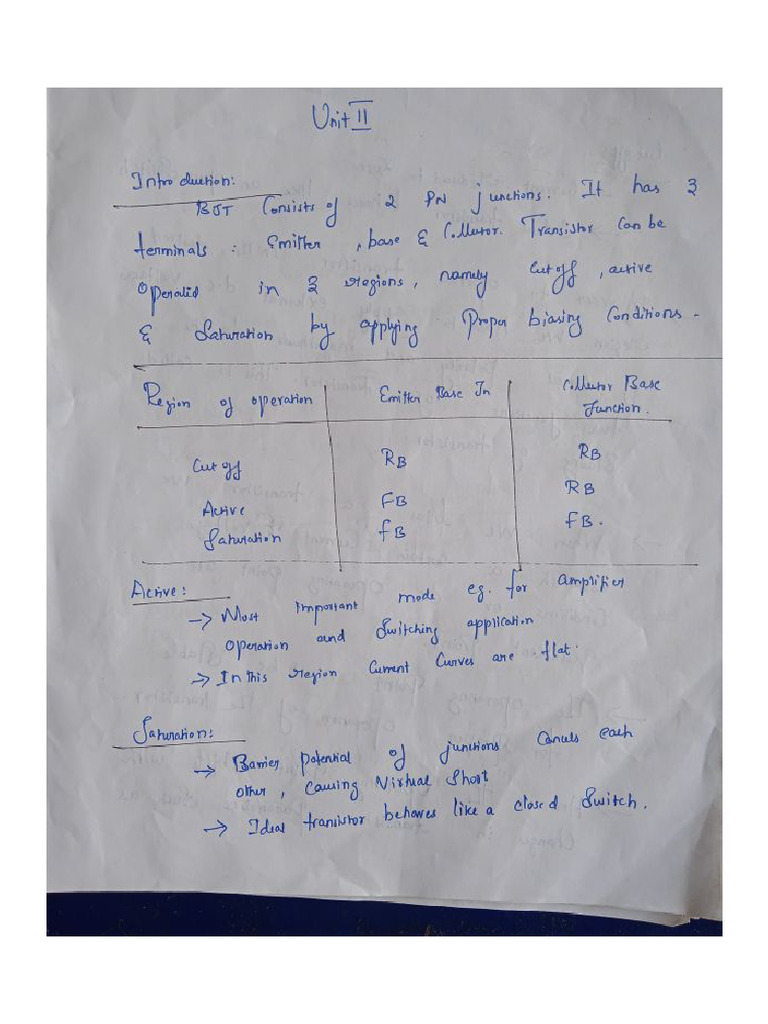 Unit II
Introduction:
BJT Consists of 2 PN junctions. It has 3
terminals : Emitter , base & Collector. Transistor Can be
Operated in 3 regions, namely Cutoff , active
& Saturation by applying Proper biasing Conditions.
Region of operation Emitter Base Jn Collector Base
Junction.
Cutoff RB RB
Active FB RB
Saturation FB FB.
Active :
→ Most important mode eg. for amplifier
operation and Switching application
→ In this region Current Curves are flat.
Saturation:
→ Barrier potential of junctions Cancels each
other , Causing Virtual Short
→ Ideal transistor behaves like a closed Switch.